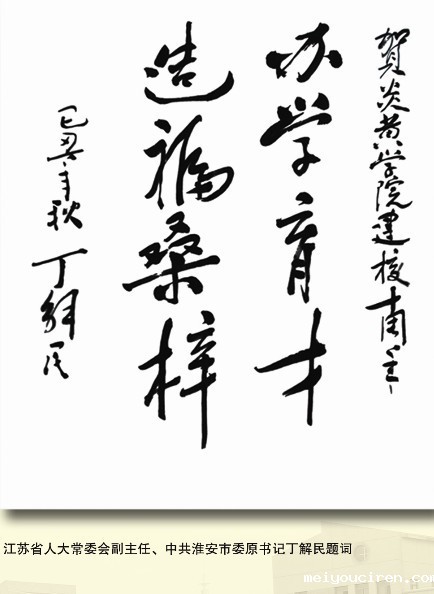 贺炎黄学院建校十周年
办学育才
造福桑梓
己丑年秋 丁解民
江苏省人大常委会副主任、中共淮安市委原书记丁解民题词
meiyouciren.com